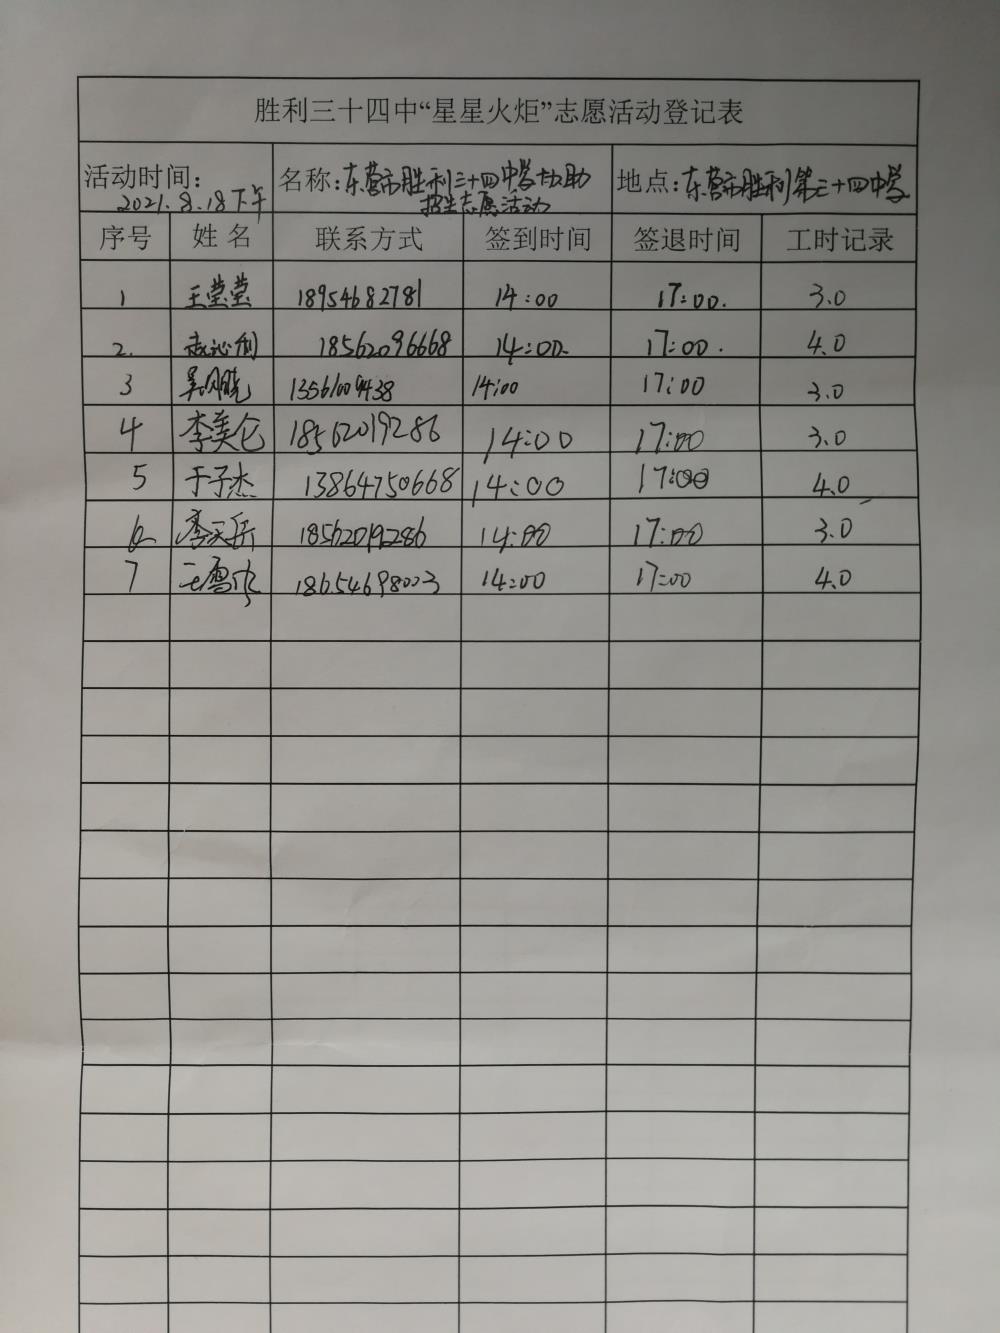 胜利三十四中“星星火炬”志愿活动登记表
活动时间： 名称：东营市胜利三十四中学协助 地点：东营市胜利第三十四中学
2021.8.18下午 招生志愿活动
序号 姓名 联系方式 签到时间 签退时间 工时记录
1 王莹莹 18954682781 14:00 17:00. 3.0
2. 赵沁钊 18562096668 14:00. 17:00. 4.0
3 13561009438 14:00 17:00 3.0
4 李美仑 18562019286 14:00 17:00 3.0
5 于子杰 13864750668 14:00 17:00 4.0
6 李天岳 18562019286 14:00 17:00 3.0
7 18654698003 14:00 17:00 4.0